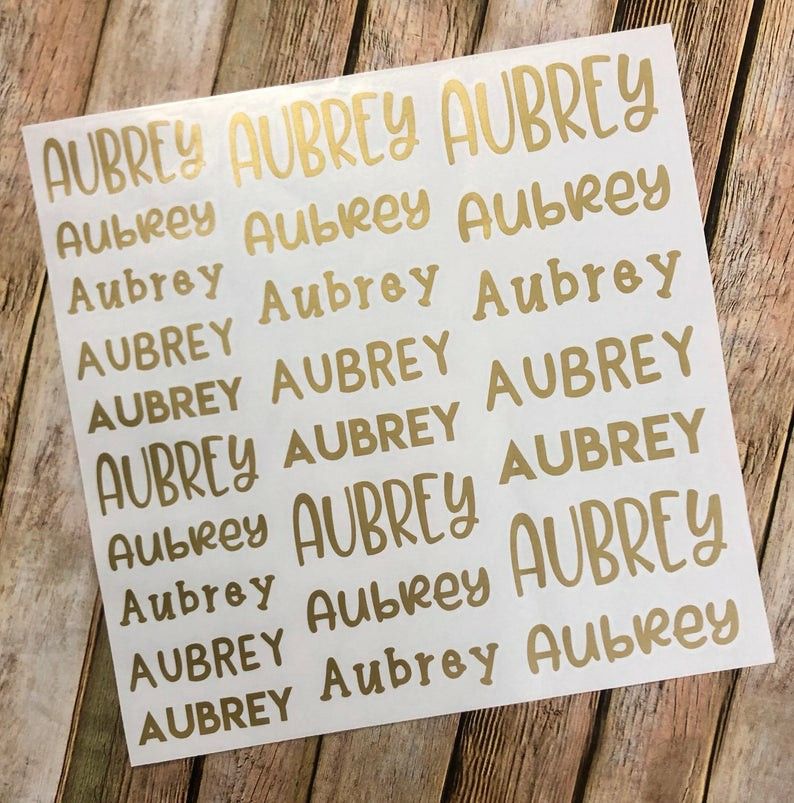 AUBREY AUBREY AUBREY
AubRey AubRey AubRey
Aubrey Aubrey Aubrey
AUBREY AUBREY AUBREY
AUBREY AUBREY AUBREY
AUBREY AUBREY AUBREY
AubRey AubRey AubRey
Aubrey Aubrey
AUBREY
AUBREY